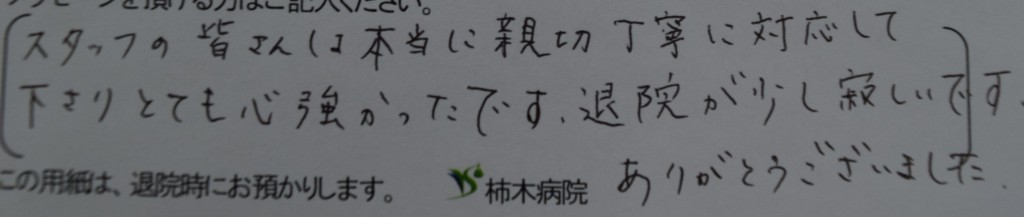 メッセージを頂ける方はご記入ください。
スタッフの皆さんは本当に親切丁寧に対応して
下さりとても心強かったです、退院が少し寂しいです、
ありがとうございました、
この用紙は、退院時にお預かりします。 柿木病院